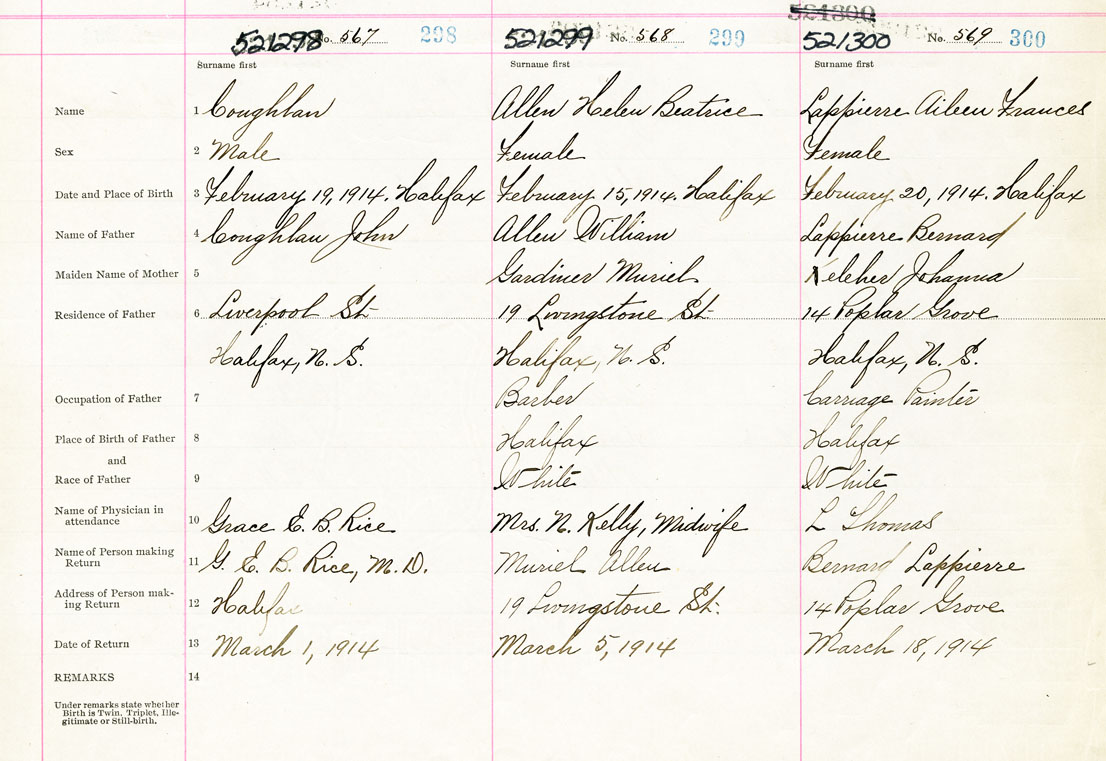 524300
521298 No. 567 298 521299 No. 568 299 521300 No. 569 300
Surname first Surname first Surname first
Name 1 Coughlan Allen Helen Beatrice Lappierre Aileen Frances
Sex 2 Male Female Female
Date and Place of Birth 3 February 19, 1914. Halifax February 15, 1914. Halifax February 20, 1914. Halifax
Name of Father 4 Coughlan John Allen William Lappierre Bernard
Maiden Name of Mother 5 Gardiner Muriel Keleher Johanna
Residence of Father 6 Liverpool St. 19 Livingstone St. 14 Poplar Grove
Halifax, N. S. Halifax, N. S. Halifax, N. S.
Occupation of Father 7 Barber Carriage Painter
Place of Birth of Father 8 Halifax Halifax
and
Race of Father 9 White White
Name of Physician in
attendance 10 Grace E. B. Rice Mrs. N. Kelly, Midwife L Thomas
Name of Person making
Return 11 G. E. B. Rice, M. D. Muriel Allen Bernard Lappierre
Address of Person mak-
ing Return 12 Halifax 19 Livingstone St. 14 Poplar Grove
Date of Return 13 March 1, 1914 March 5, 1914 March 18, 1914
REMARKS 14
Under remarks state whether
Birth is Twin, Triplet, Ille-
gitimate or Still-birth.